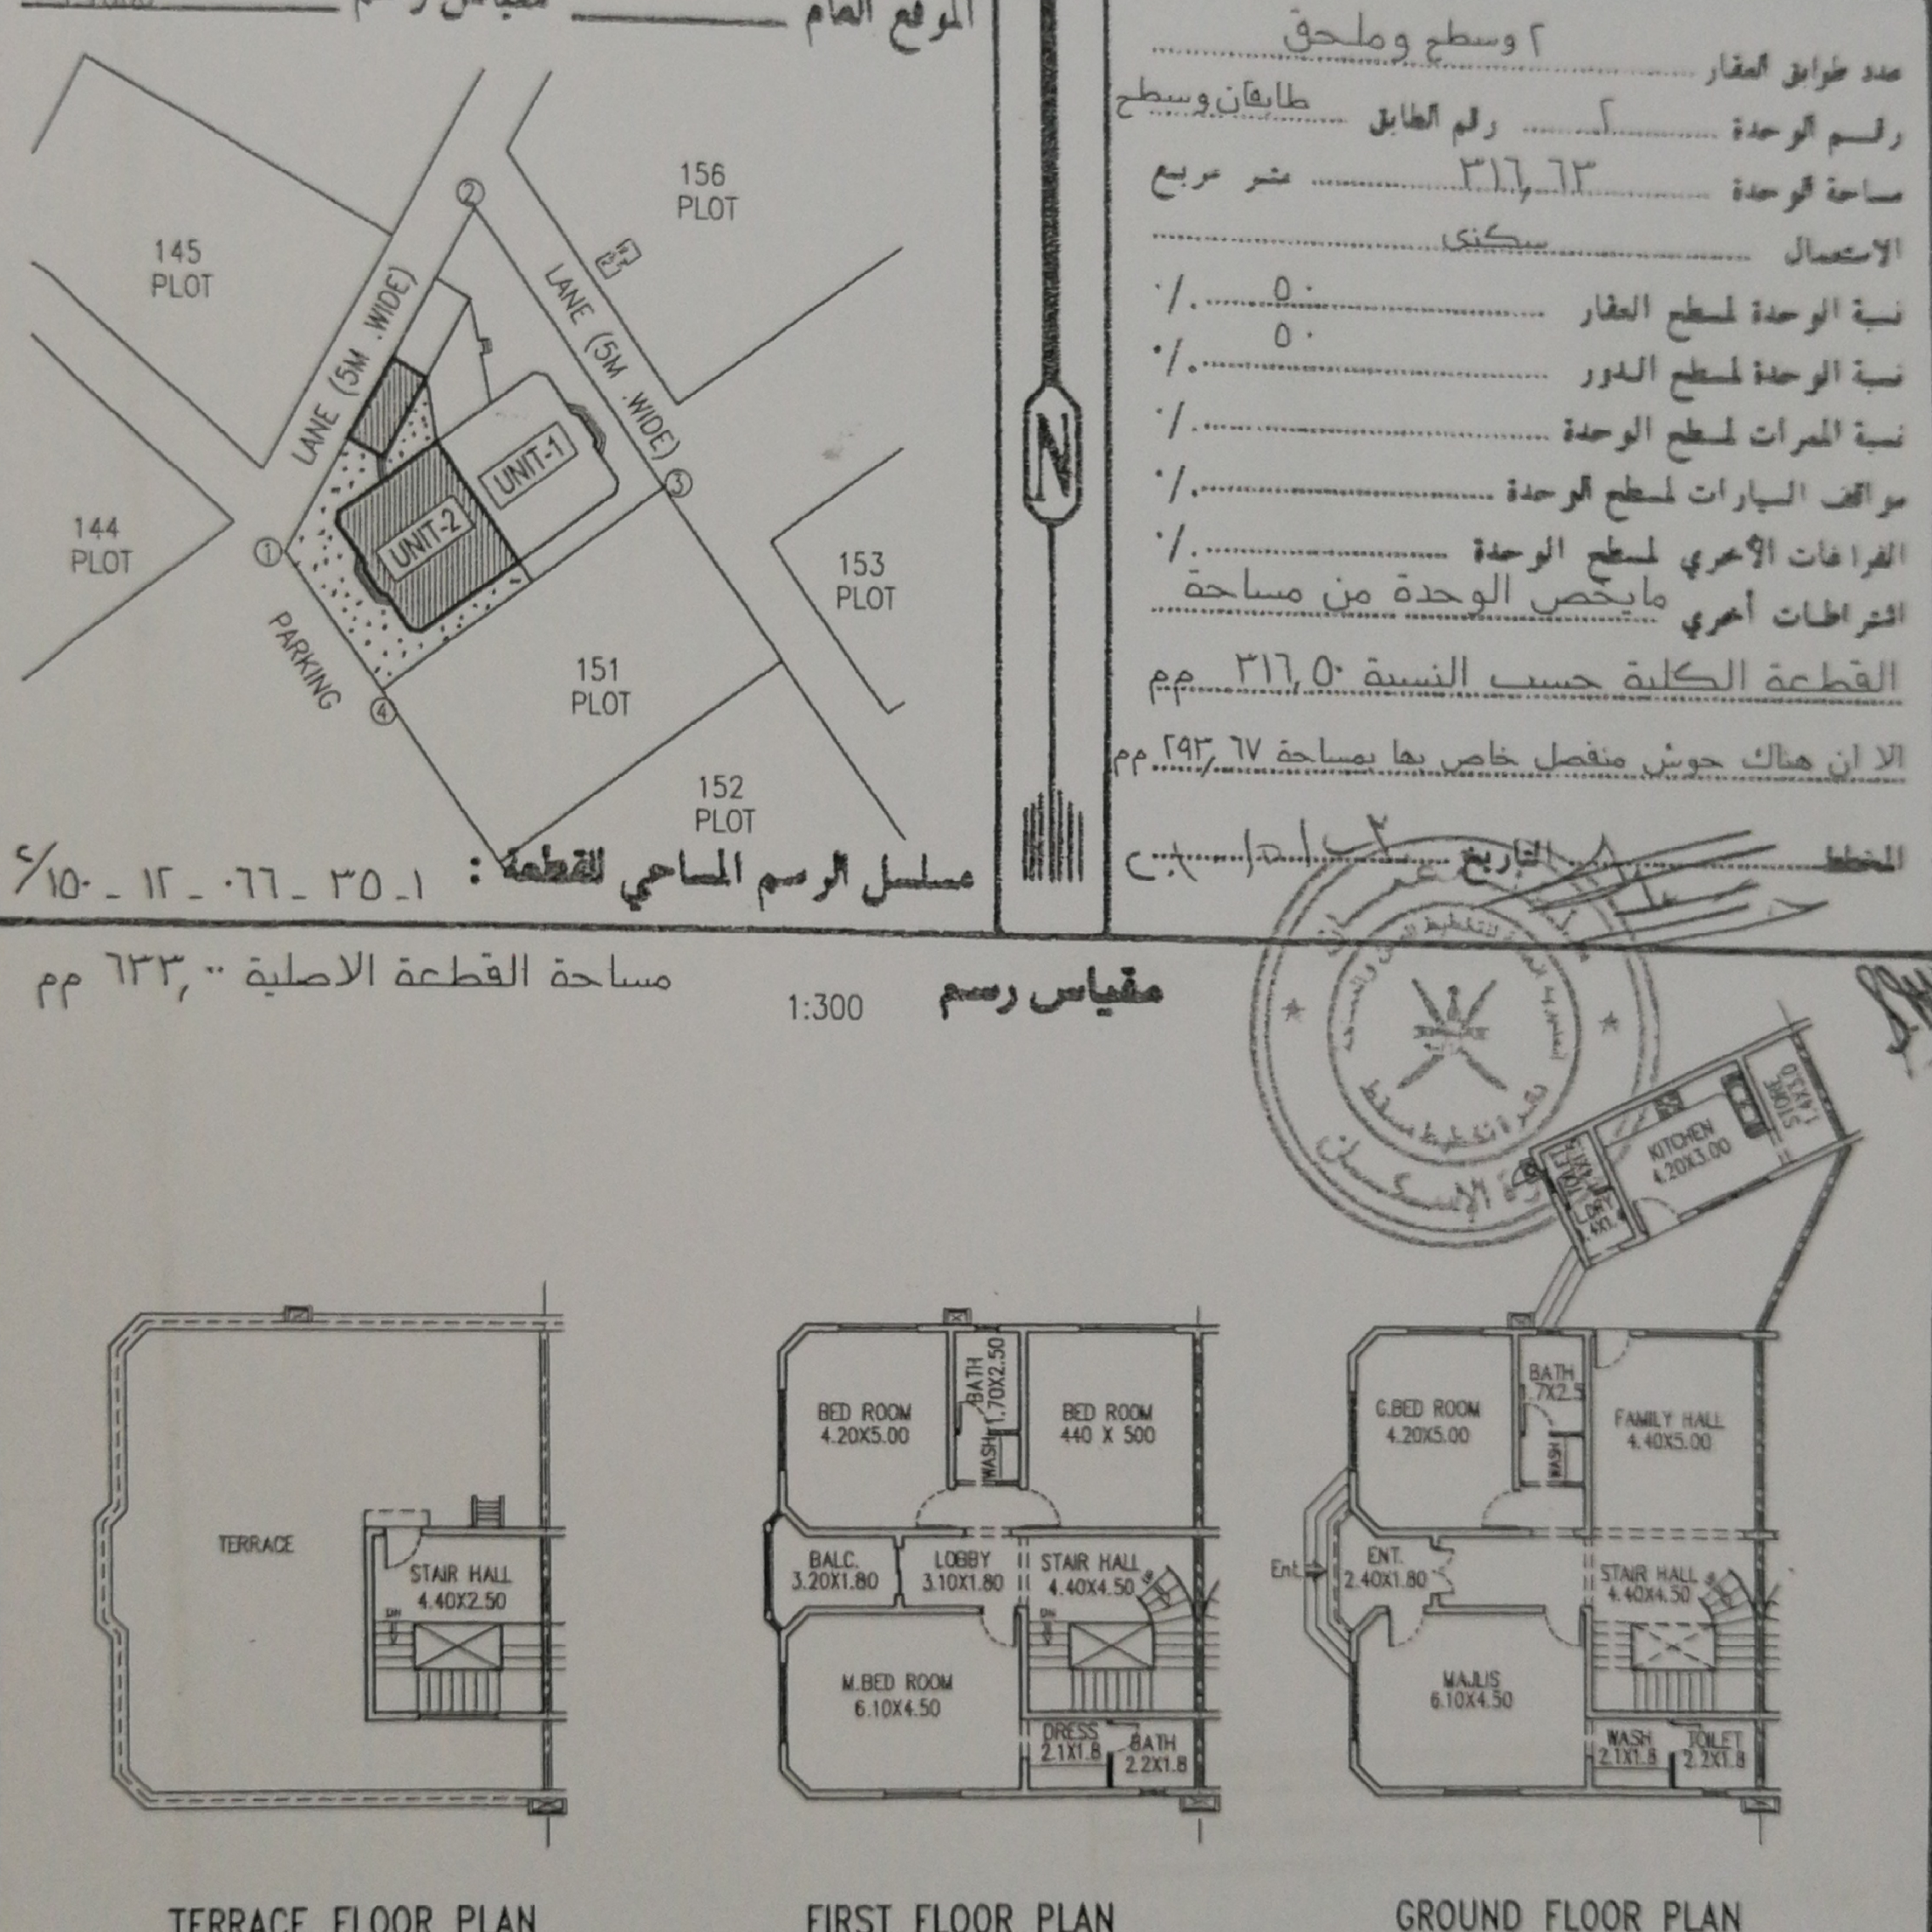 الموقع العام
مقياس رسم
156
PLOT
145
PLOT
LANE (5M .WIDE)
LANE (5M .WIDE)
2
UNIT-1
UNIT-2
3
1
144
PLOT
153
PLOT
PARKING
4
151
PLOT
152
PLOT
مسلسل الرسم المساحي للقطعة : ١-٣٥-٠٦٦-١٢-١٥٠/٢
N
عدد طوابق العقار ٢ وسطح وملحق
رقم الوحدة ٢ رقم الطابق طابقان وسطح
مساحة الوحدة ٣١٦,٦٣ متر مربع
الاستعمال سكني
نسبة الوحدة لمسطح العقار ٥٠ ٪
نسبة الوحدة لمسطح الدور ٥٠ ٪
نسبة الممرات لمسطح الوحدة ٪
مواقف السيارات لمسطح الوحدة ٪
الفراغات الأخري لمسطح الوحدة ٪
اشتراطات أخري مايخص الوحدة من مساحة
القطعة الكلية حسب النسبة ٣١٦,٥٠ م م
الا ان هناك حوش منفصل خاص بها بمساحة ٢٩٣,٦٧ م م
المخطط التاريخ
مساحة القطعة الاصلية ٦٣٣,٠٠ م م
مقياس رسم 1:300
TERRACE
STAIR HALL
4.40X2.50
DN
TERRACE FLOOR PLAN
BED ROOM
4.20X5.00
BATH
1.70X2.50
WASH
BED ROOM
440 X 500
BALC.
3.20X1.80
LOBBY
3.10X1.80
STAIR HALL
4.40X4.50
DN
M.BED ROOM
6.10X4.50
DRESS
2.1X1.8
BATH
2.2X1.8
FIRST FLOOR PLAN
STORE
1.4X3.0
KITCHEN
4.20X3.00
G.BED ROOM
4.20X5.00
BATH
1.7X2.5
WASH
FAMILY HALL
4.40X5.00
Ent.
ENT.
2.40X1.80
STAIR HALL
4.40X4.50
MAJLIS
6.10X4.50
WASH
2.1X1.8
TOILET
2.2X1.8
GROUND FLOOR PLAN